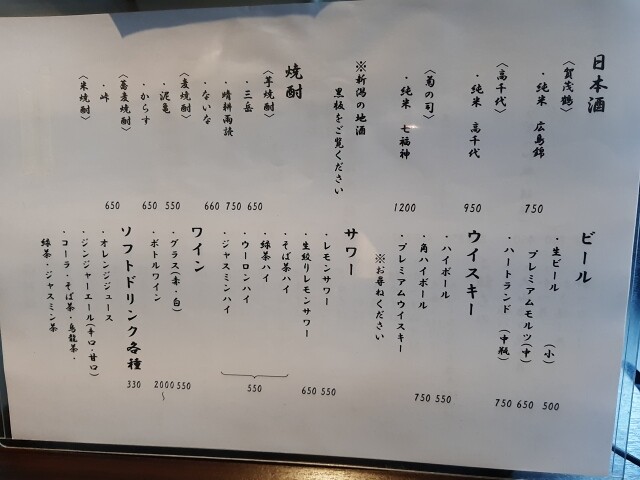 日本酒
〈賀茂鶴〉
・純米 広島錦 750
〈高千代〉
・純米 高千代 950
〈菊の司〉
・純米 七福神 1200
※新潟の地酒
黒板をご覧ください
焼酎
〈芋焼酎〉
・三岳 650
・晴耕雨読 750
・ないな 660
〈麦焼酎〉
・泥亀 550
・からす 650
〈蕎麦焼酎〉
・峠 650
〈米焼酎〉
ビール
・生ビール (小) 500
プレミアムモルツ(中) 650
・ハートランド (中瓶) 750
ウイスキー
・ハイボール 550
・角ハイボール 750
・プレミアムウイスキー
※お尋ねください
サワー
・レモンサワー 550
・生絞りレモンサワー 650
・そば茶ハイ
・緑茶ハイ
・ウーロンハイ
・ジャスミンハイ
550
ワイン
・グラス(赤・白) 550
・ボトルワイン 2000〜
ソフトドリンク各種 330
・オレンジジュース
・ジンジャーエール(辛口・甘口)
・コーラ・そば茶・烏龍茶・
緑茶・ジャスミン茶